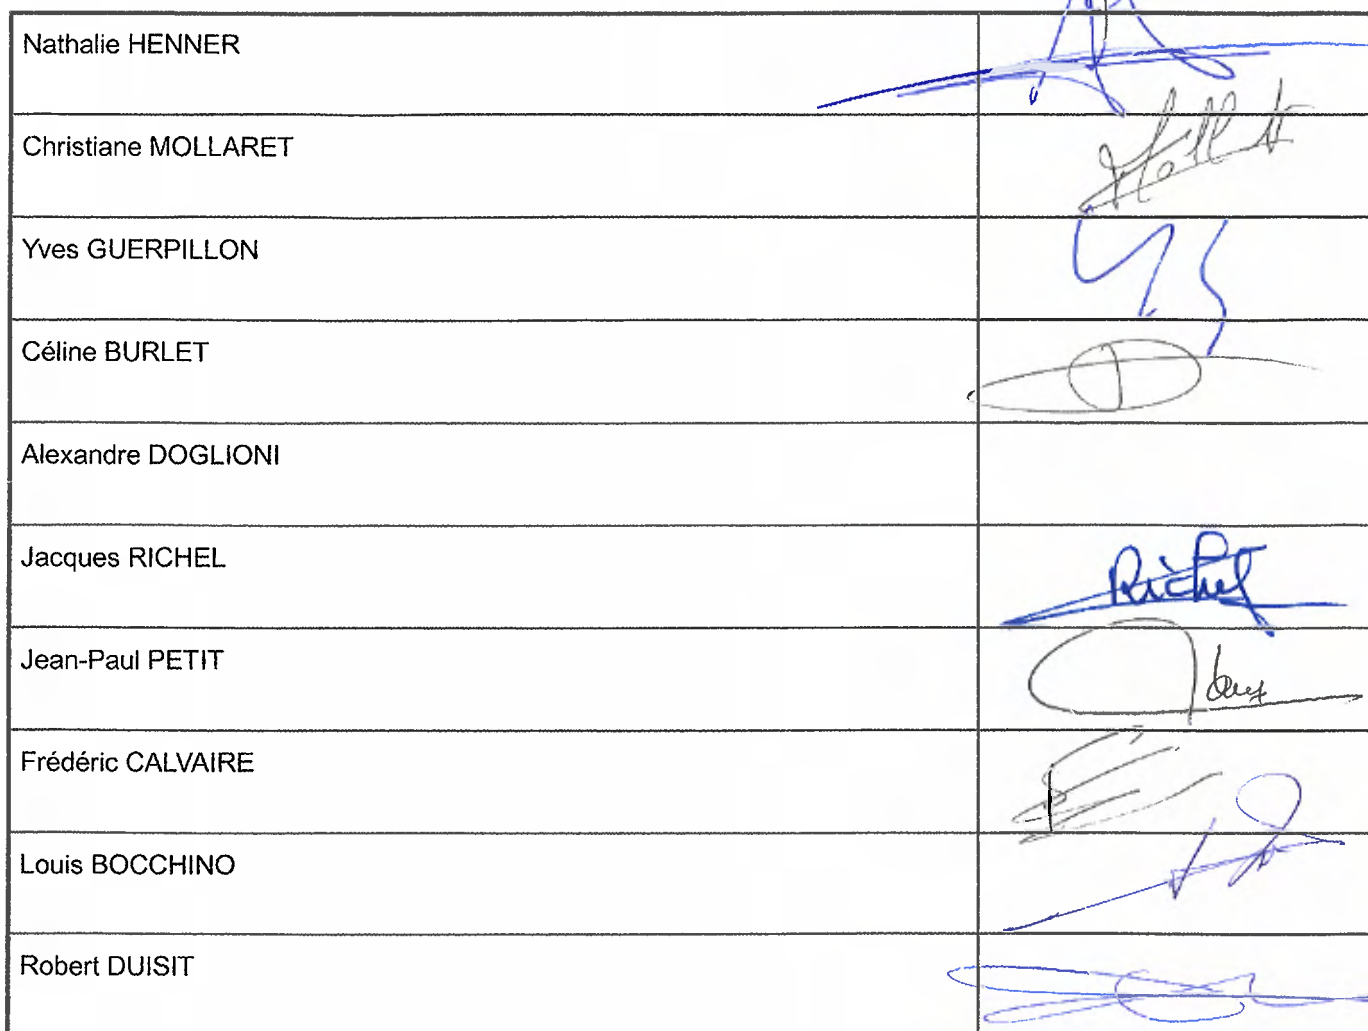 Nathalie HENNER
Christiane MOLLARET
Yves GUERPILLON
Céline BURLET
Alexandre DOGLIONI
Jacques RICHEL
Richel
Jean-Paul PETIT
Frédéric CALVAIRE
Louis BOCCHINO
Robert DUISIT